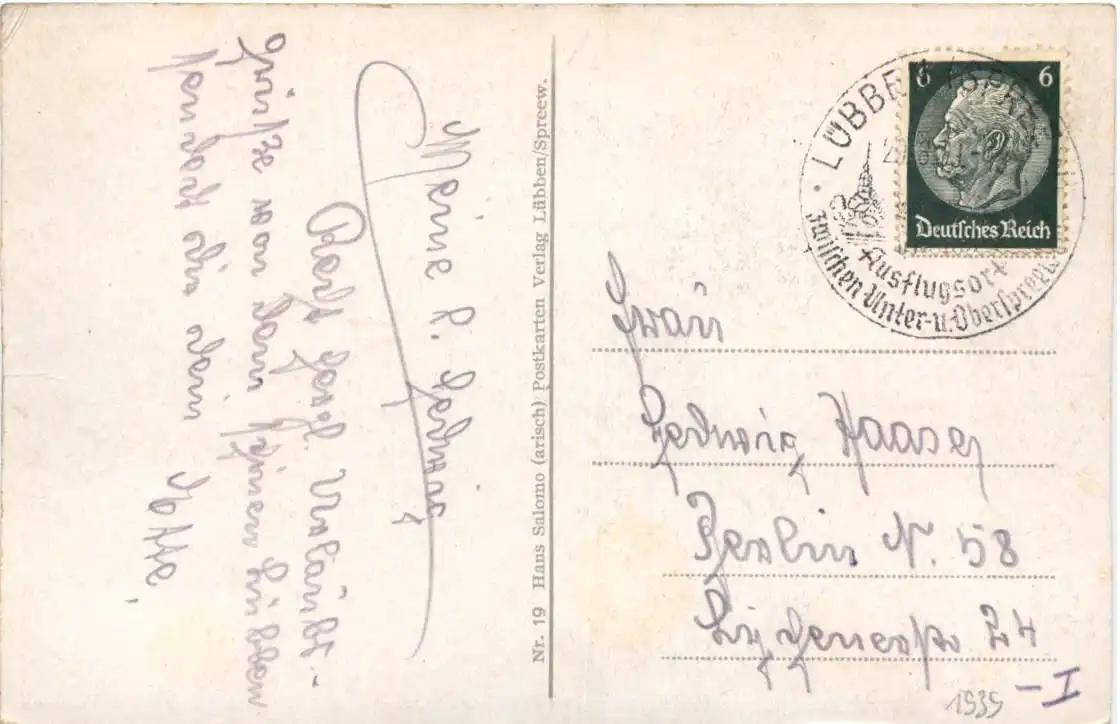 Meine l. Hedwig
Recht herzl. Urlaubs-
grüße von dem schönen Lübben
sendet dir dein
Otto.
Nr. 19 Hans Salomo (arisch) Postkarten Verlag Lübben/Spreew.
6 6
Deutsches Reich
LÜBBEN (SPREEWALD)
Ausflugsort
zwischen Unter-u. Oberspreewald
Frau
Hedwig Haase
Berlin N. 58
24
– I
1935